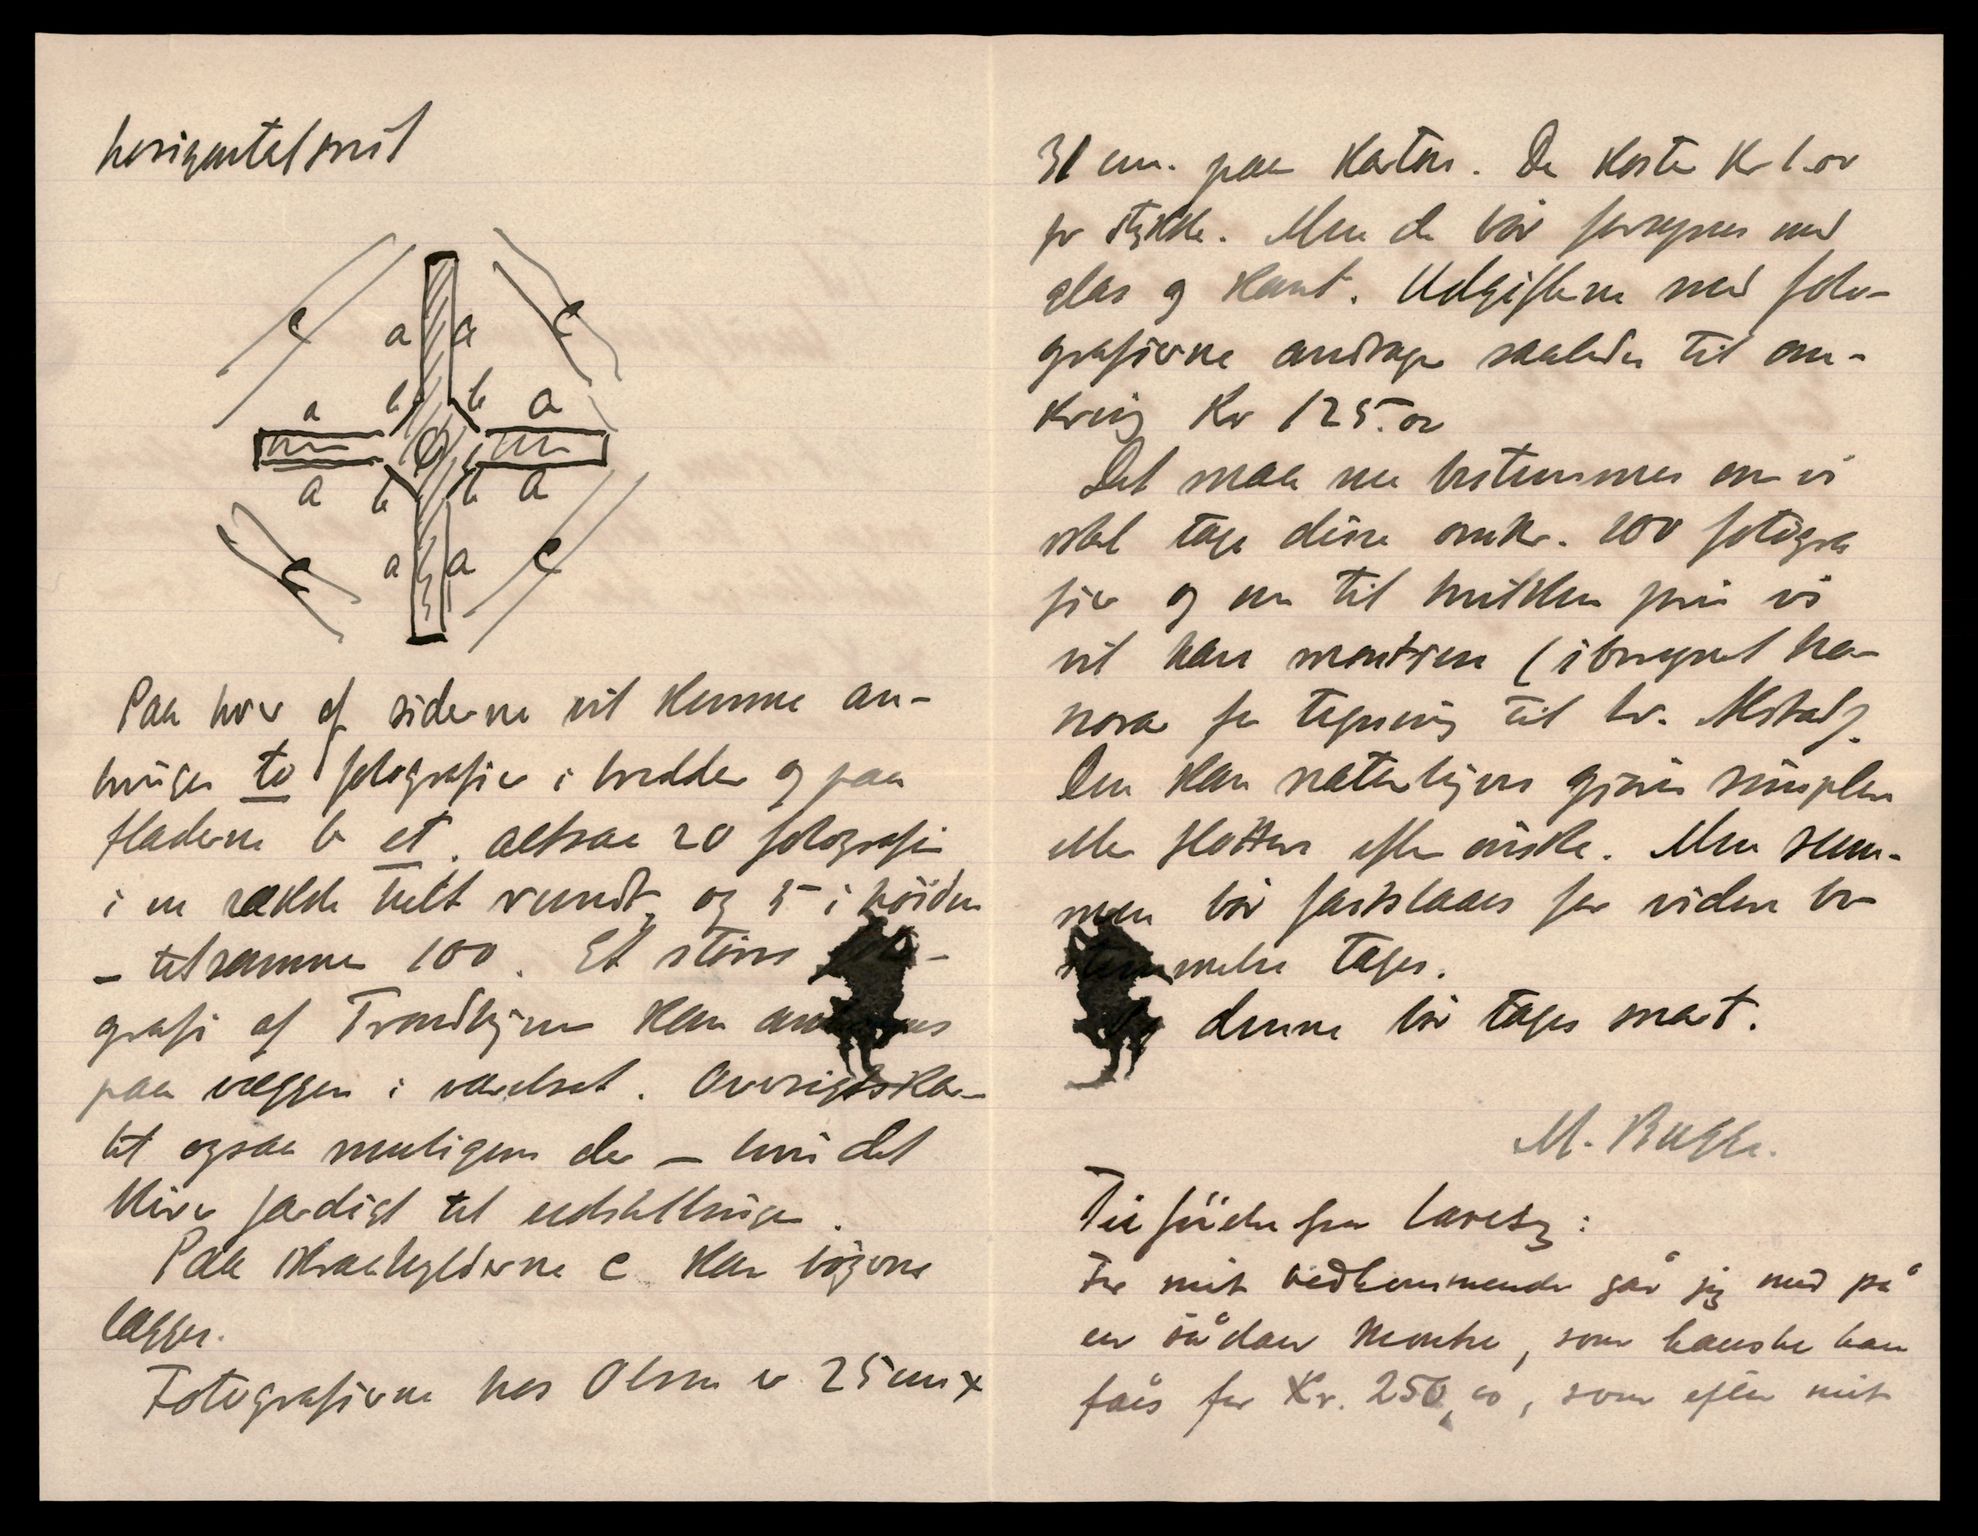 horizontalsnit
c
c
a
a
a
b
b
a
a
b
b
a
c
a
a
c
Paa hver af siderne vil kunne an-
bringes to fotografier i bredden og paa
fladerne b et. altsaa 20 fotografi
i en række helt rundt, og 5 i høiden
- tilsammen 100. Et større foto-
grafi af Trondhjem kan anbringes
paa væggen i værelset. Oversigtskar-
tet ogsaa muligens der - hvis det
bliver færdigt til udstillingen.
Paa skraahylderne c kan bøgerne
lægges.
Fotografierne hos Olsen er 25 cm x
31 cm. paa karton. De koster Kr 1.00
pr stykke. Men de bør forsynes med
glas og kant. Udgifterne med foto-
grafierne andrager saaledes til om-
kring Kr 125.00
Det maa nu bestemmes om vi
skal tage disse omkr. 100 fotogra
fier og om til hvilken pris vi
vil have montren (iberegnet ho-
norar for tegning til hr. Alstad).
Den kan naturligvis gjøres simplere
eller flottere efter ønske. Men sum-
men bør fastslaaes før videre be-
stemmelse tages.
denne bør tages snart.
M. Bugge.
Tilføielse fra
For mit vedkommende går jeg med på
en sådan Montre, som kanske kan
fåes for Kr. 250,00, som efter mit